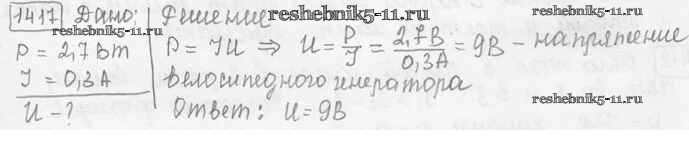 1417 Дано: Решение reshebnik5-11.ru
P = 2,7 Вт P = IU ⇒ U = P/I = 2,7В/0,3А = 9В – напряжение
I = 0,3 А велосипедного генератора
U – ? Ответ: U = 9В
reshebnik5-11.ru
reshebnik5-11.ru
reshebnik5-11.ru